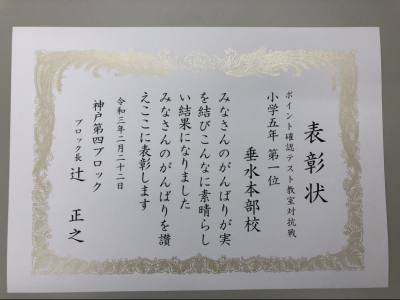 表彰状
ポイント確認テスト教室対抗戦
小学五年 第一位
垂水本部校
みなさんのがんばりが実
を結びこんなに素晴らし
い結果になりました
みなさんのがんばりを讃
えここに表彰します
令和三年二月二十二日
神戸第四ブロック
ブロック長 辻 正之